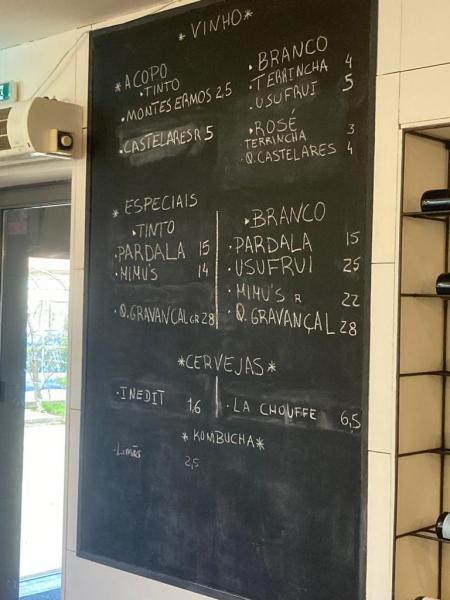 *VINHO*
*A COPO
•TINTO
•MONTES ERMOS 2,5
•CASTELARES R 5
•BRANCO
•TERRINCHA 4
•USUFRUI 5
•ROSÉ
TERRINCHA 3
•Q.CASTELARES 4
* ESPECIAIS
•TINTO
•PARDALA 15
•MIMU'S 14
•Q.GRAVANÇAL GR 28
•BRANCO
•PARDALA 15
•USUFRUI 25
•MIMU'S R 22
•Q.GRAVANÇAL 28
*CERVEJAS*
•INEDIT 1,6
•LA CHOUFFE 6,5
*KOMBUCHA*
•Limão 2,5